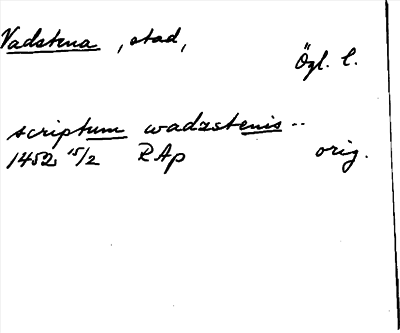 Vadstena, stad,
Ögl. l.
scriptum wadzstenis..
1452 15/2 RAp orig.